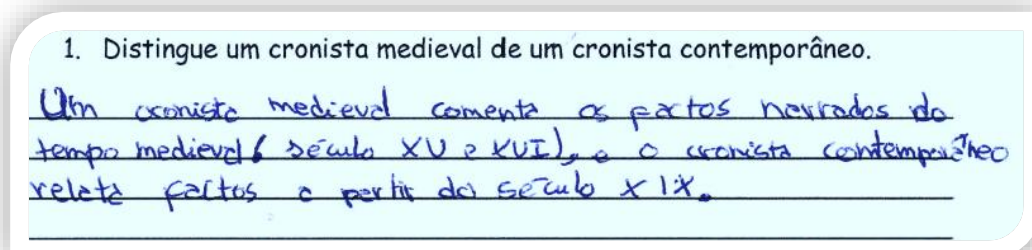 1. Distingue um cronista medieval de um cronista contemporâneo.
Um cronista medieval comenta os factos narrados do
tempo medieval (século XV e XVI), e o cronista contemporâneo
relata factos a partir do século XIX.